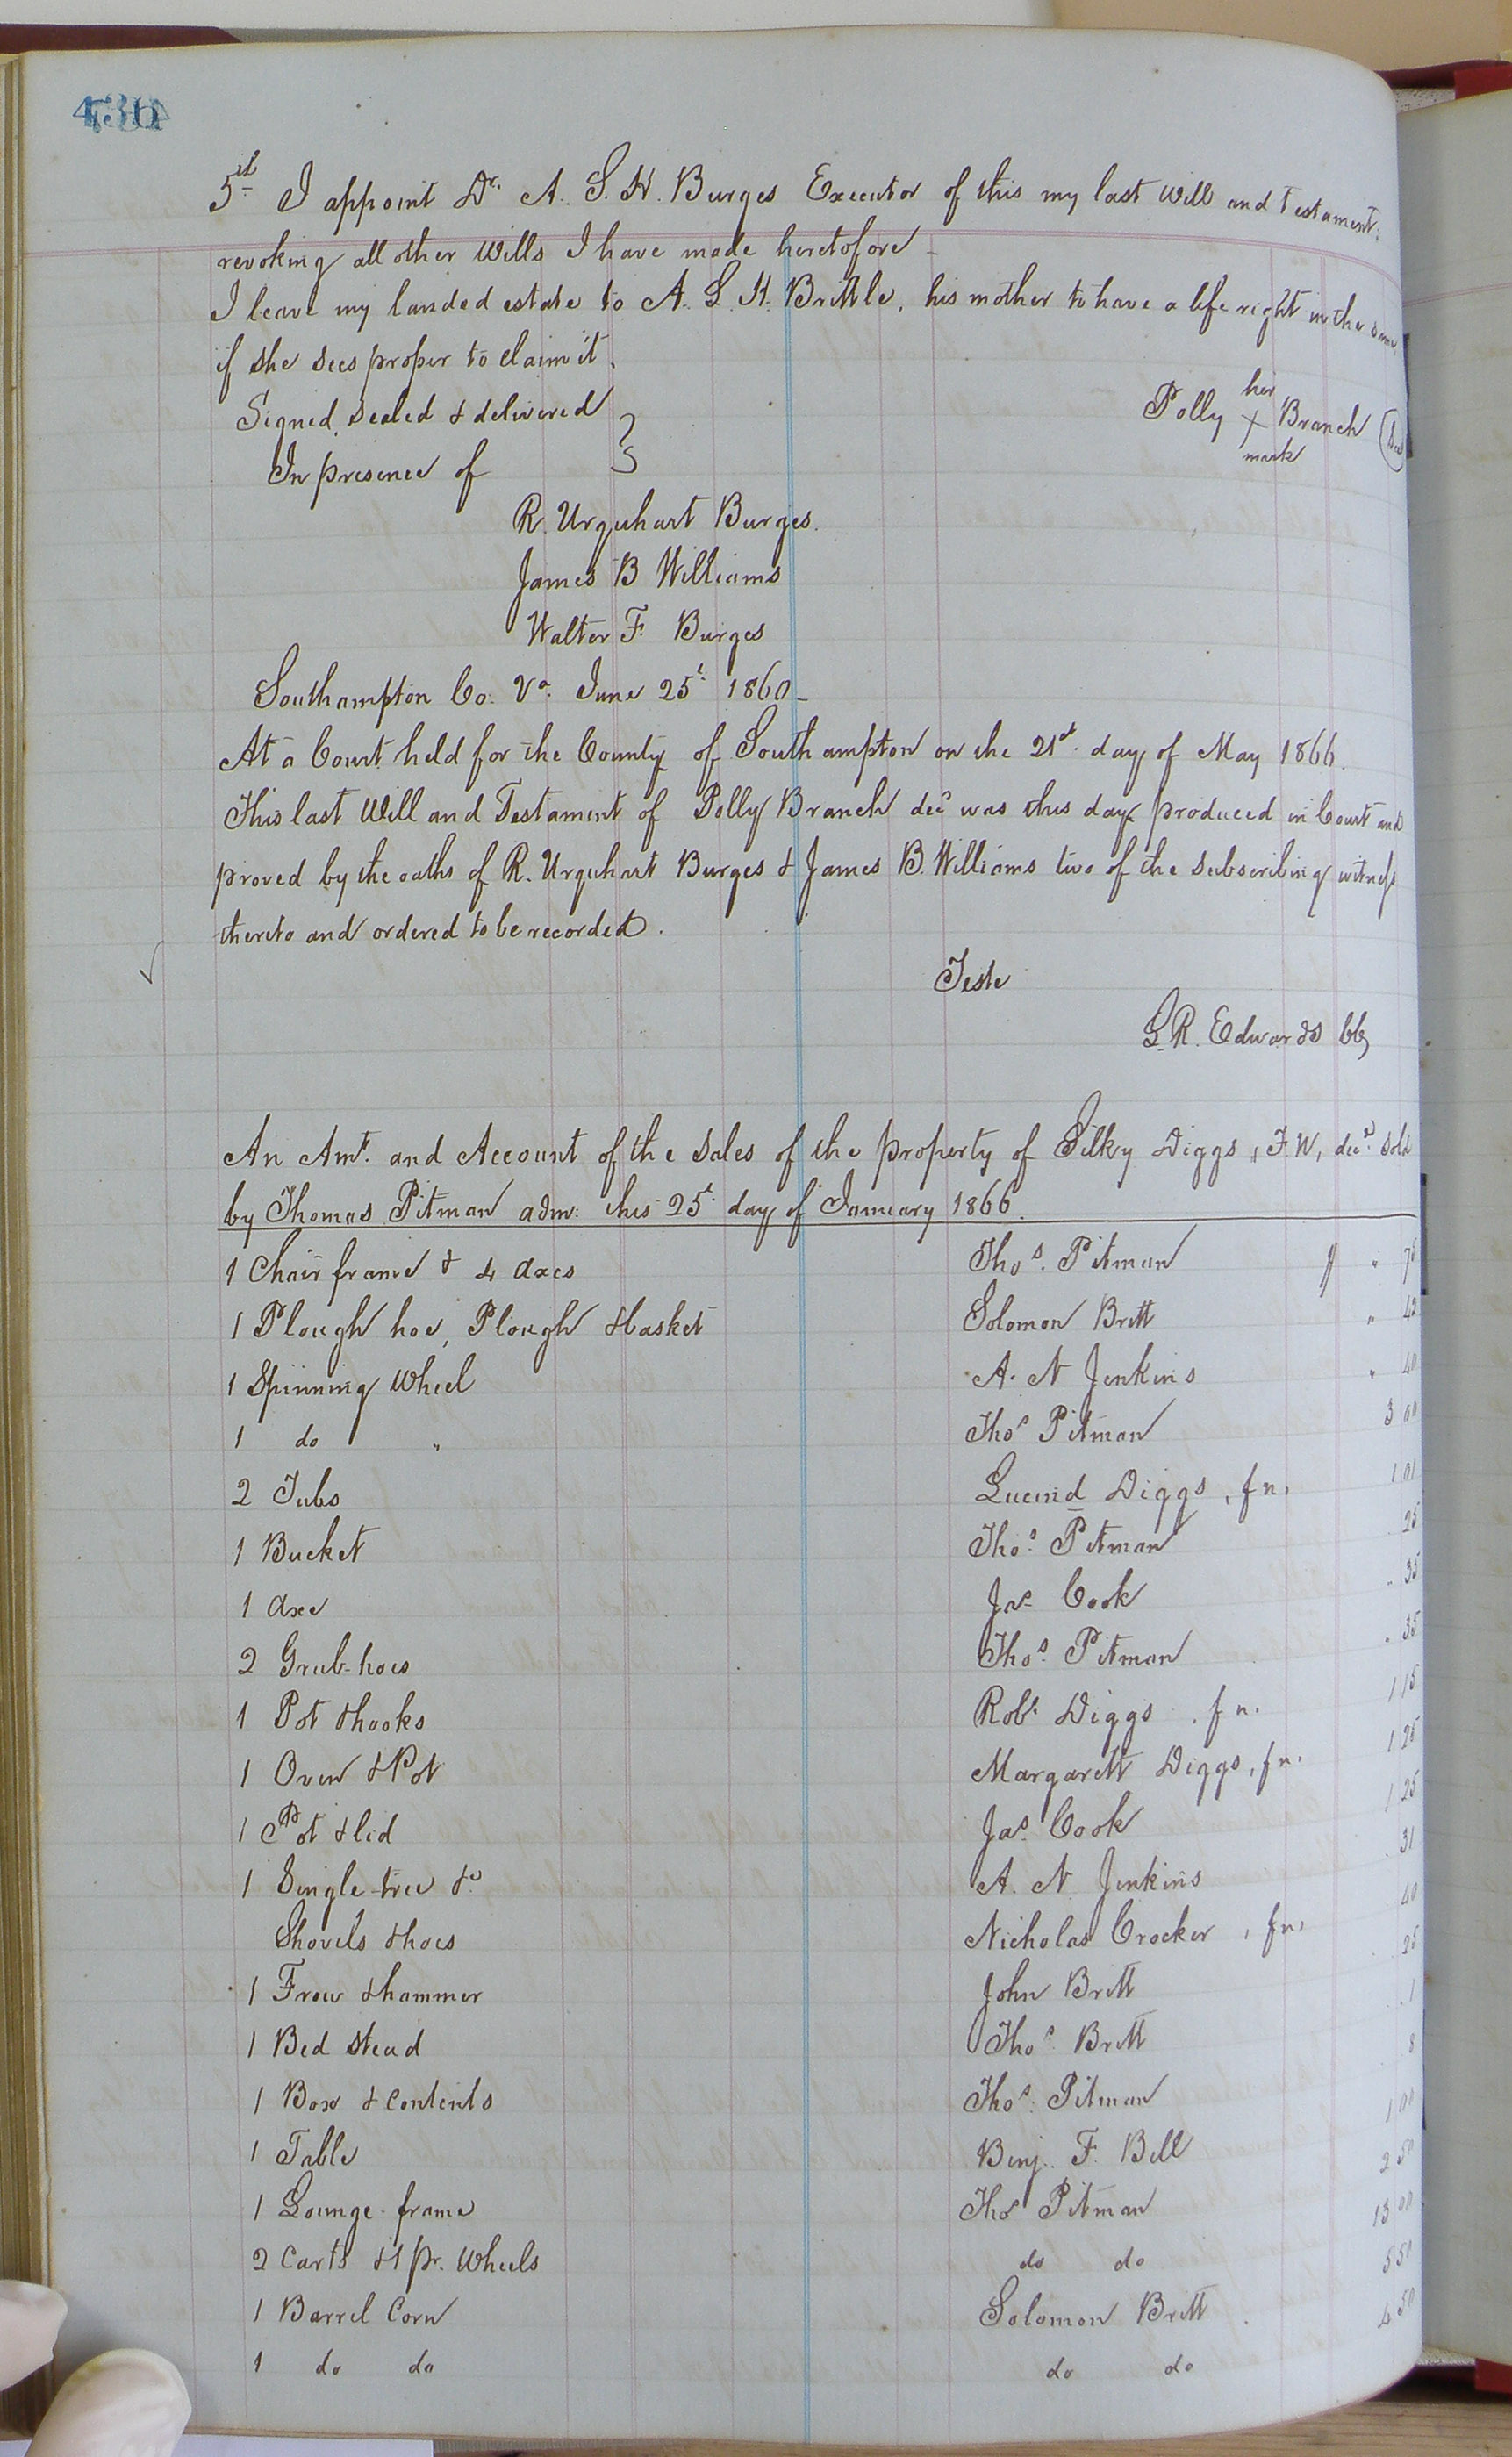 5th I appoint Dr. A. S. H. Burges Executor of this my last Will and Testament,
revoking all other Wills I have made heretofore –
I leave my landed estate to A. S. H. Brittle, his mother to have a life right in the same
if she sees proper to claim it.
Signed, Sealed & delivered
In presence of
Polly her X mark Branch (Seal)
R. Urquhart Burges.
James B Williams
Walter F. Burges
Southampton Co. Va. June 25t 1860 –
At a Court held for the County of Southampton on the 21st day of May 1866.
This last Will and Testament of Polly Branch decd was this day produced in Court and
proved by the oaths of R. Urquhart Burges & James B. Williams two of the subscribing witness
thereto and ordered to be recorded.
Teste
L. R. Edwards CC
An Amt. and Account of the Sales of the property of Silky Diggs, F. W, decd. Sold
by Thomas Pitman adm: this 25t day of January 1866.
1 Chair frame & 4 axes Thos. Pitman $ "
1 Plough hoe, Plough & basket Solomon Britt "
1 Spinning Wheel A. N Jenkins " 40
1 do " Thos Pitman 3 00
2 Tubs Lucind Diggs, f n. 1 01
1 Bucket Thos. Pitman 25
1 axe Jas Cook " 35
2 Grub-hoes Thos. Pitman " 35
1 Pot & hooks Robt. Diggs, f n. 1 15
1 Oven & Pot Margarett Diggs, f n. 1 25
1 Pot & lid Jas. Cook 1 25
1 Single-tree &c A. N. Jenkins 31
Shovels & hoes Nicholas Crocker, f n, 40
1 Frow & hammer John Britt 25
1 Bed Stead Thos. Britt 1
1 Box & Contents Thos. Pitman 8
1 Table Benj. F. Bell 1 00
1 Lounge-frame Thos Pitman 2 50
2 Carts & 1 pr. Wheels do do 13 00
1 Barrel Corn Solomon Britt 5 50
1 do do do do 4 50